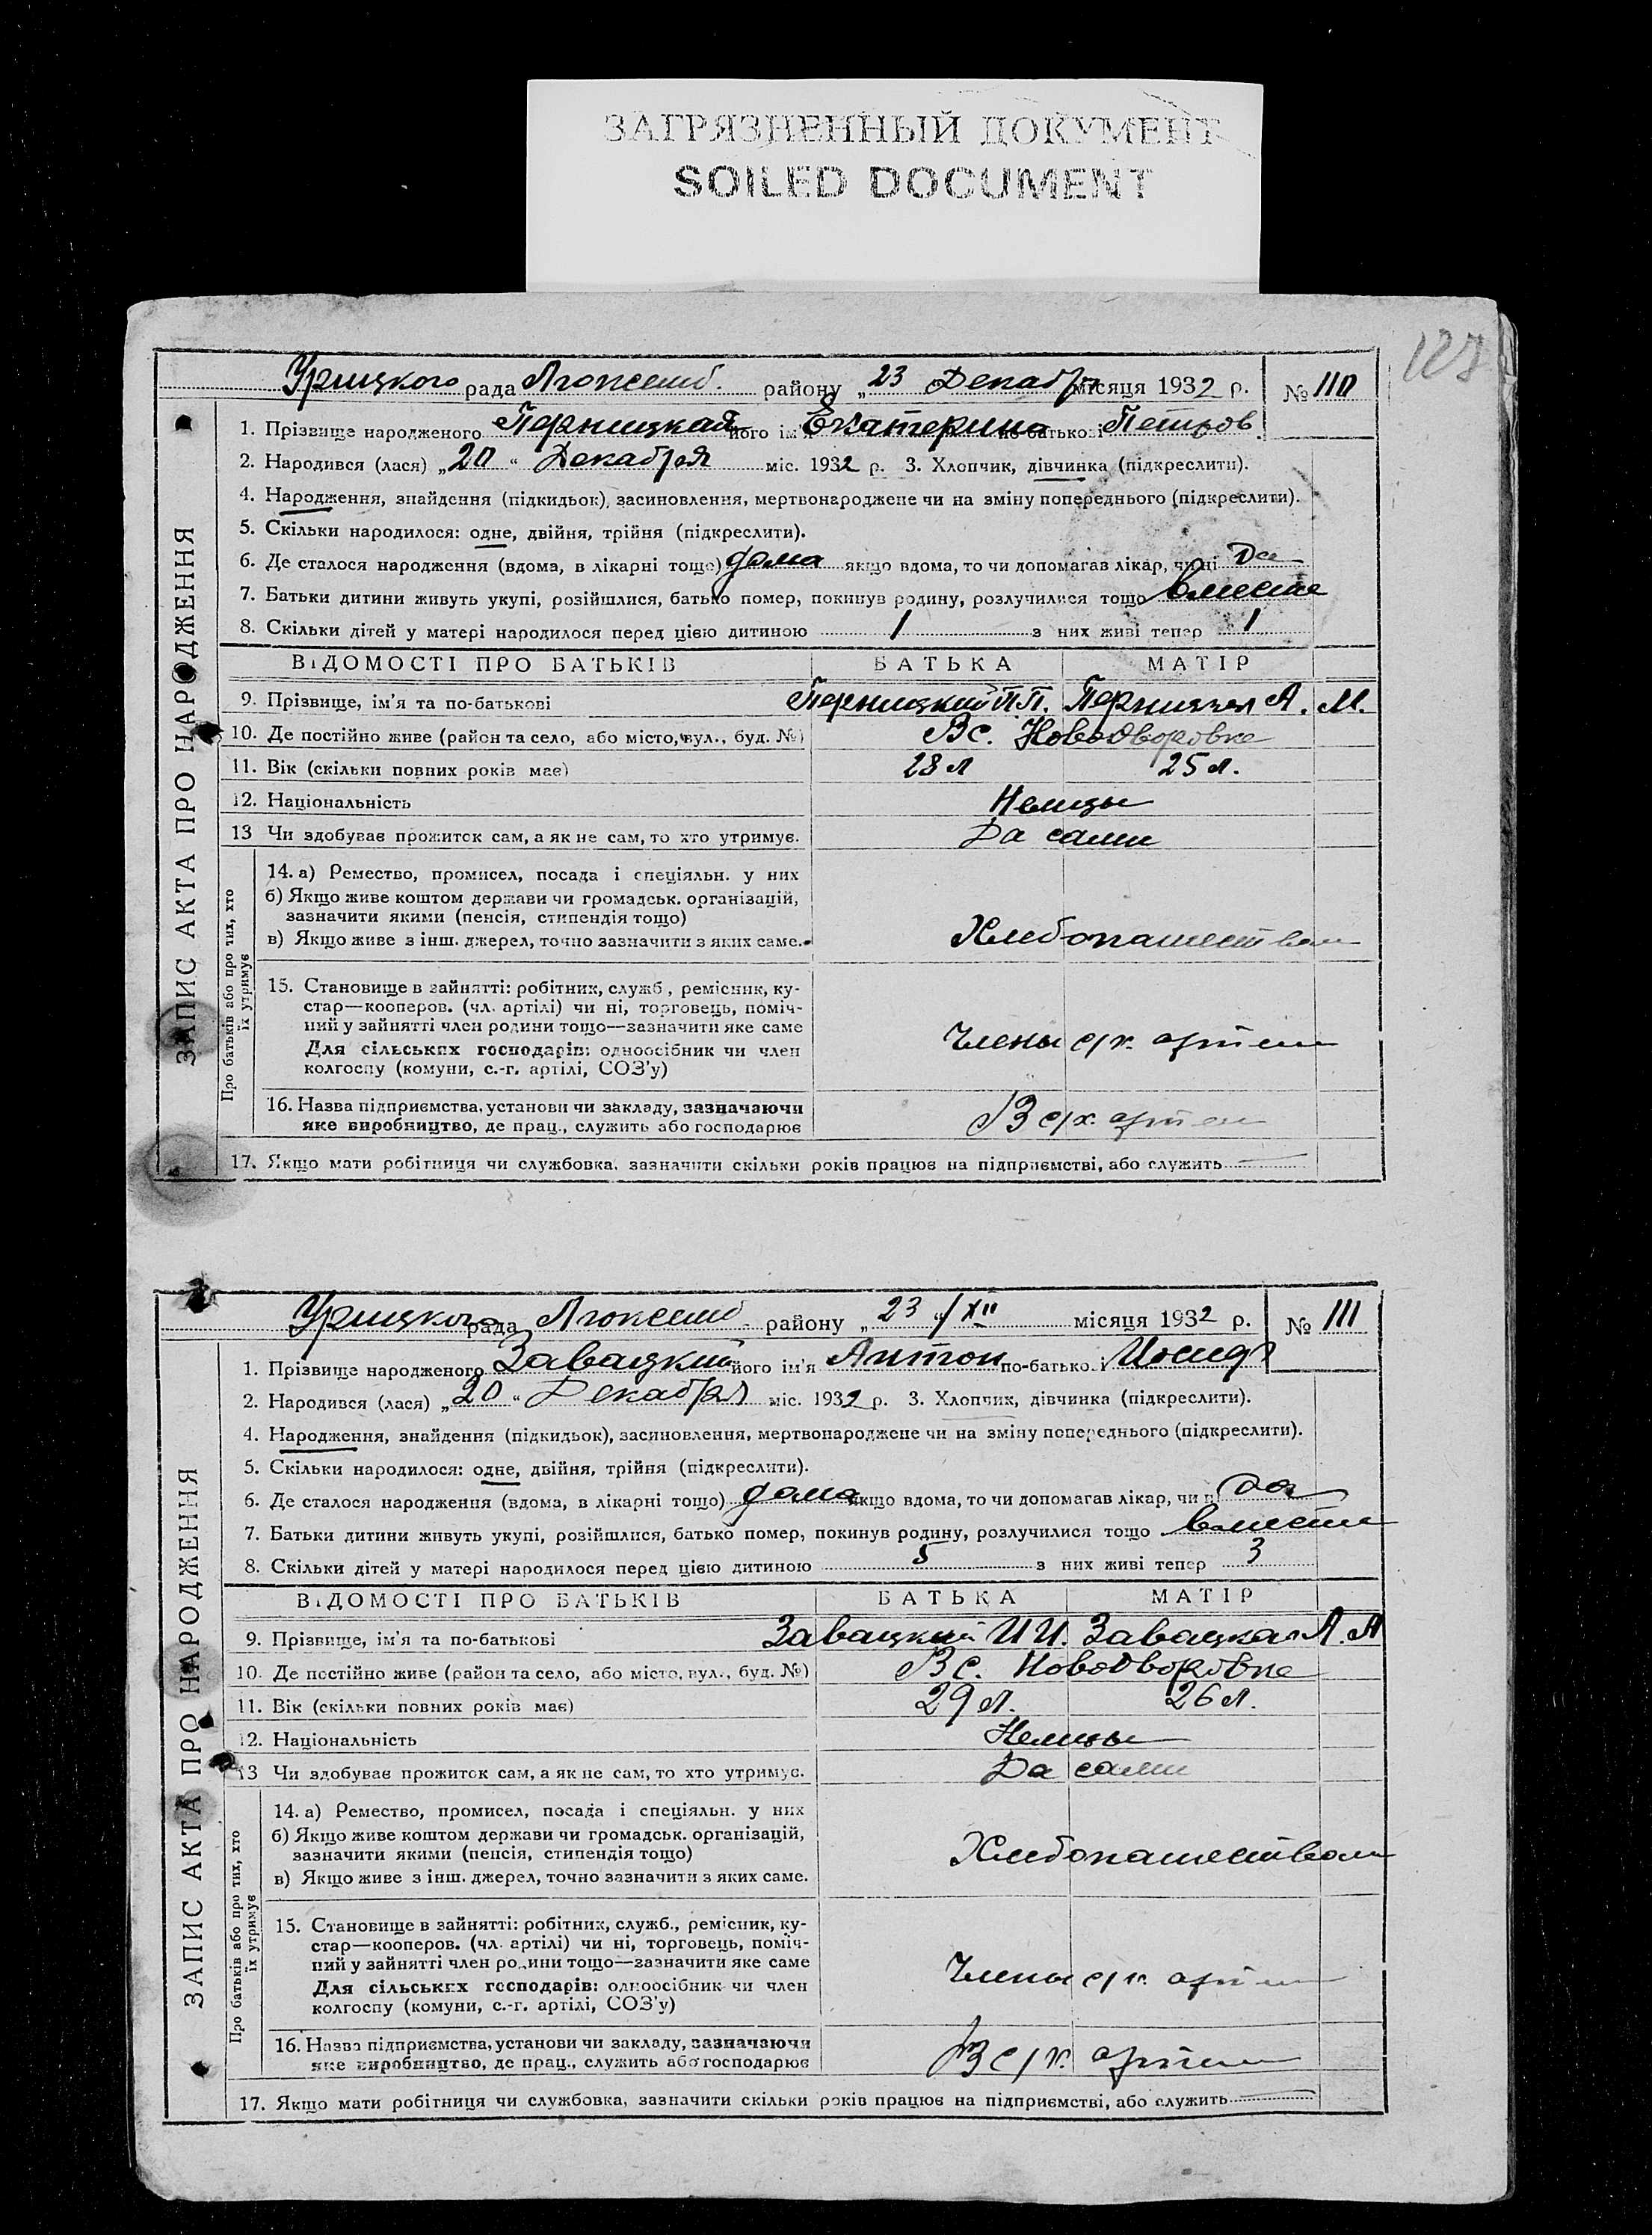 ЗАГРЯЗНЕННЫЙ ДОКУМЕНТ
SOILED DOCUMENT
127
Урицкого рада району „23 Декабр місяця 1932 р. № 110
1. Прізвище народженого його ім'я Екатерина по-батькові Петров
2. Народився (лася) „20“ Декабря міс. 1932 р. 3. Хлопчик, дівчинка (підкреслити).
4. Народження, знайдення (підкидьок), засиновлення, мертвонароджене чи на зміну попереднього (підкреслити).
5. Скільки народилося: одне, двійня, трійня (підкреслити).
6. Де сталося народження (вдома, в лікарні тощо) дома якщо вдома, то чи допомагав лікар, чи ні Да
7. Батьки дитини живуть укупі, розійшлися, батько помер, покинув родину, розлучилися тощо вместе
8. Скільки дітей у матері народилося перед цією дитиною 1 з них живі тепер 1
ВІДОМОСТІ ПРО БАТЬКІВ БАТЬКА МАТІР
9. Прізвище, ім'я та по-батькові П.П. А. М.
10. Де постійно живе (район та село, або місто, вул., буд. №) В с. Новодворовке
11. Вік (скільки повних років має) 28 л 25 л.
12. Національність Немцы
13 Чи здобуває прожиток сам, а як не сам, то хто утримує. Да сами
14. а) Ремество, промисел, посада і спеціяльн. у них
б) Якщо живе коштом держави чи громадськ. організацій,
зазначити якими (пенсія, стипендія тощо)
в) Якщо живе з інш. джерел, точно зазначити з яких саме. Хлебопашеством
15. Становище в зайнятті: робітник, служб., ремісник, ку-
стар—кооперов. (чл. артілі) чи ні, торговець, поміч-
ний у зайнятті член родини тощо—зазначити яке саме
Для сільських господарів: одноосібник чи член
колгоспу (комуни, с.-г. артілі, СОЗ'у) Члены с/х. артели
16. Назва підприємства, установи чи закладу, зазначаючи
яке виробництво, де прац., служить або господарює В с/х. артели
17. Якщо мати робітниця чи службовка, зазначити скільки років працює на підприємстві, або служить
ЗАПИС АКТА ПРО НАРОДЖЕННЯ
Про батьків або про тих, хто
їх утримує
Урицкого рада району „23“/XII місяця 1932 р. № 111
1. Прізвище народженого Завацкий його ім'я Антон по-батькові
2. Народився (лася) „20“ Декабря міс. 1932 р. 3. Хлопчик, дівчинка (підкреслити).
4. Народження, знайдення (підкидьок), засиновлення, мертвонароджене чи на зміну попереднього (підкреслити).
5. Скільки народилося: одне, двійня, трійня (підкреслити).
6. Де сталося народження (вдома, в лікарні тощо) дома якщо вдома, то чи допомагав лікар, чи ні Да
7. Батьки дитини живуть укупі, розійшлися, батько помер, покинув родину, розлучилися тощо вместе
8. Скільки дітей у матері народилося перед цією дитиною 5 з них живі тепер 3
ВІДОМОСТІ ПРО БАТЬКІВ БАТЬКА МАТІР
9. Прізвище, ім'я та по-батькові Завацкий И И. Завацкая А. А
10. Де постійно живе (район та село, або місто, вул., буд. №) В с. Новодворовке
11. Вік (скільки повних років має) 29 л. 26 л.
12. Національність Немцы
13 Чи здобуває прожиток сам, а як не сам, то хто утримує. Да сами
14. а) Ремество, промисел, посада і спеціяльн. у них
б) Якщо живе коштом держави чи громадськ. організацій,
зазначити якими (пенсія, стипендія тощо)
в) Якщо живе з інш. джерел, точно зазначити з яких саме. Хлебопашеством
15. Становище в зайнятті: робітник, служб., ремісник, ку-
стар—кооперов. (чл. артілі) чи ні, торговець, поміч-
ний у зайнятті член родини тощо—зазначити яке саме
Для сільських господарів: одноосібник чи член
колгоспу (комуни, с.-г. артілі, СОЗ'у) Члены с/х. артели
16. Назва підприємства, установи чи закладу, зазначаючи
яке виробництво, де прац., служить або господарює В с/х. артели
17. Якщо мати робітниця чи службовка, зазначити скільки років працює на підприємстві, або служить
ЗАПИС АКТА ПРО НАРОДЖЕННЯ
Про батьків або про тих, хто
їх утримує